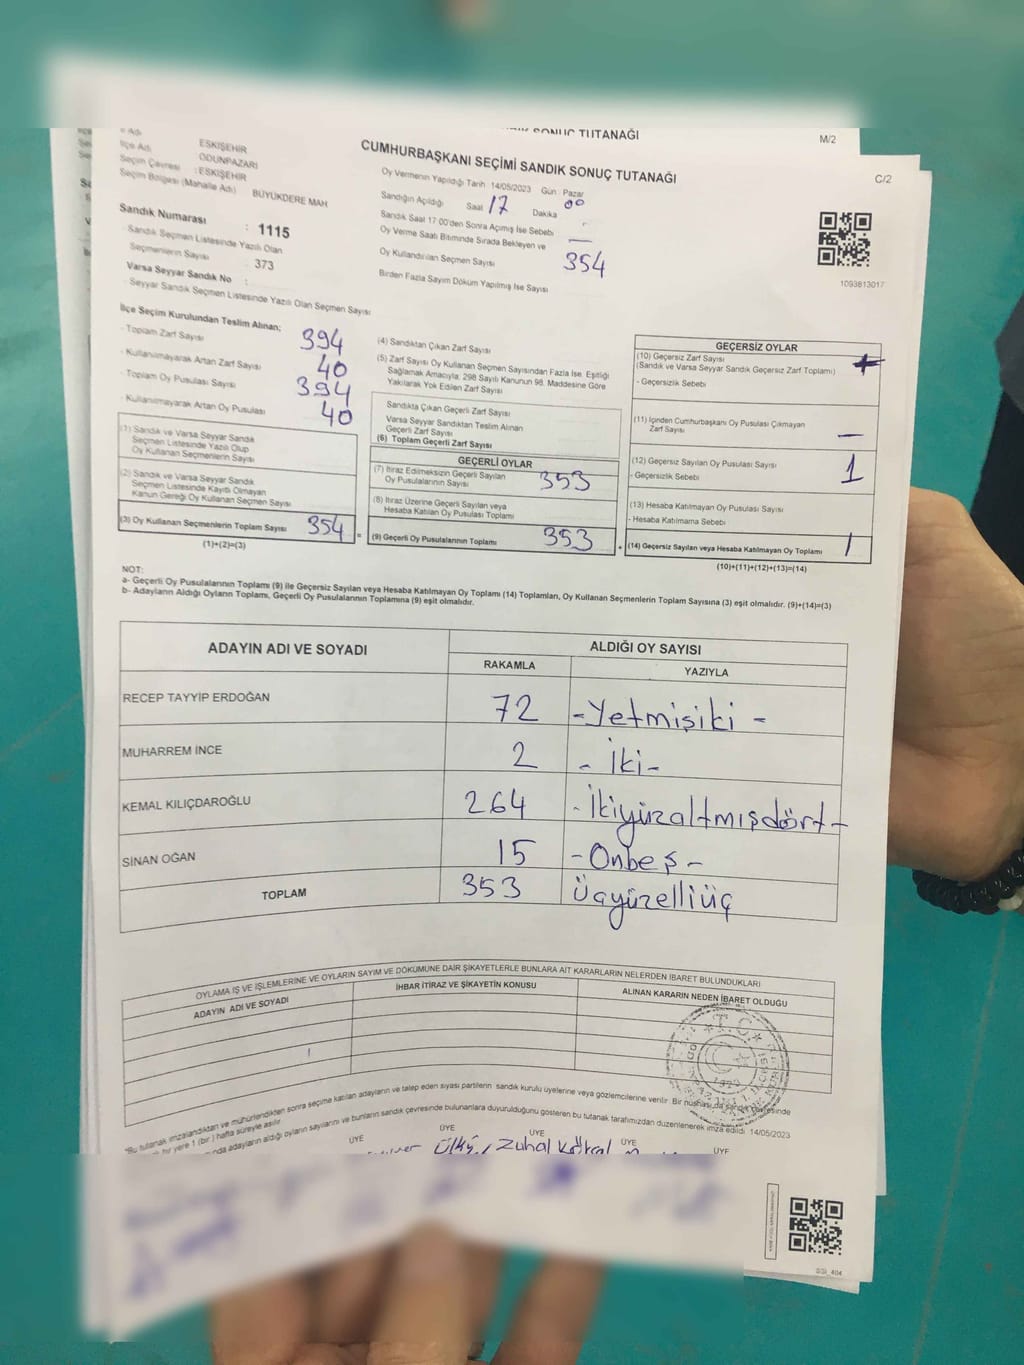 SONUÇ TUTANAĞI
M/2
CUMHURBAŞKANI SEÇİMİ SANDIK SONUÇ TUTANAĞI
C/2
İlçe Adı ESKİŞEHİR
ODUNPAZARI
Seçim Çevresi : ESKİŞEHİR
Seçim Bölgesi (Mahalle Adı) BÜYÜKDERE MAH
Sandık Numarası : 1115
Sandık Seçmen Listesinde Yazılı Olan
Seçmenlerin Sayısı : 373
Varsa Seyyar Sandık No :
Seyyar Sandık Seçmen Listesinde Yazılı Olan Seçmen Sayısı
Oy Vermenin Yapıldığı Tarih 14/05/2023 Gün Pazar
Sandığın Açıldığı Saat 17 Dakika 00
Sandık Saat 17:00'den Sonra Açımış İse Sebebi -
Oy Verme Saati Bitiminde Sırada Bekleyen ve
Oy Kullandırılan Seçmen Sayısı 354
Birden Fazla Sayım Döküm Yapılmış İse Sayısı
1093813017
İlçe Seçim Kurulundan Teslim Alınan;
- Toplam Zarf Sayısı 394
- Kullanılmayarak Artan Zarf Sayısı 40
- Toplam Oy Pusulası Sayısı 394
- Kullanılmayarak Artan Oy Pusulası 40
(1) Sandık ve Varsa Seyyar Sandık
Seçmen Listesinde Yazılı Olup
Oy Kullanan Seçmenlerin Sayısı
(2) Sandık ve Varsa Seyyar Sandık
Seçmen Listesinde Kayıtlı Olmayan
Kanun Gereği Oy Kullanan Seçmen Sayısı
(3) Oy Kullanan Seçmenlerin Toplam Sayısı 354 =
(1)+(2)=(3)
(4) Sandıktan Çıkan Zarf Sayısı
(5) Zarf Sayısı Oy Kullanan Seçmen Sayısından Fazla İse, Eşitliği
Sağlamak Amacıyla, 298 Sayılı Kanunun 98. Maddesine Göre
Yakılarak Yok Edilen Zarf Sayısı
Sandıkta Çıkan Geçerli Zarf Sayısı
Varsa Seyyar Sandıktan Teslim Alınan
Geçerli Zarf Sayısı
(6) Toplam Geçerli Zarf Sayısı
GEÇERLİ OYLAR
(7) İtiraz Edilmeksizin Geçerli Sayılan
Oy Pusulalarının Sayısı 353
(8) İtiraz Üzerine Geçerli Sayılan veya
Hesaba Katılan Oy Pusulası Toplamı
(9) Geçerli Oy Pusulalarının Toplamı 353 +
GEÇERSİZ OYLAR
(10) Geçersiz Zarf Sayısı
(Sandık ve Varsa Seyyar Sandık Geçersiz Zarf Toplamı)
- Geçersizlik Sebebi
(11) İçinden Cumhurbaşkanı Oy Pusulası Çıkmayan
Zarf Sayısı -
(12) Geçersiz Sayılan Oy Pusulası Sayısı 1
- Geçersizlik Sebebi
(13) Hesaba Katılmayan Oy Pusulası Sayısı
- Hesaba Katılmama Sebebi
(14) Geçersiz Sayılan veya Hesaba Katılmayan Oy Toplamı 1
(10)+(11)+(12)+(13)=(14)
NOT:
a- Geçerli Oy Pusulalarının Toplamı (9) ile Geçersiz Sayılan veya Hesaba Katılmayan Oy Toplamı (14) Toplamları, Oy Kullanan Seçmenlerin Toplam Sayısına (3) eşit olmalıdır. (9)+(14)=(3)
b- Adayların Aldığı Oyların Toplamı, Geçerli Oy Pusulalarının Toplamına (9) eşit olmalıdır.
ADAYIN ADI VE SOYADI ALDIĞI OY SAYISI
RAKAMLA YAZIYLA
RECEP TAYYİP ERDOĞAN 72 - Yetmişiki -
MUHARREM İNCE 2 - İki -
KEMAL KILIÇDAROĞLU 264 - İkiyüzaltmışdört -
SİNAN OĞAN 15 - Onbeş -
TOPLAM 353 Üçyüzelliüç
OYLAMA İŞ VE İŞLEMLERİNE VE OYLARIN SAYIM VE DÖKÜMÜNE DAİR ŞİKAYETLERLE BUNLARA AİT KARARLARIN NELERDEN İBARET BULUNDUKLARI
ADAYIN ADI VE SOYADI İHBAR İTİRAZ VE ŞİKAYETİN KONUSU ALINAN KARARIN NEDEN İBARET OLDUĞU
T.C.
"Bu tutanak imzalandıktan ve mühürlendikten sonra seçime katılan adayların ve talep eden siyasi partilerin sandık kurulu üyelerine veya gözlemcilerine verilir. Bir nüshası da sandık çevresinde
bir yere 1 (bir) hafta süreyle asılır.
adayların aldığı oyların sayılarını ve bunların sandık çevresinde bulunanlara duyurulduğunu gösteren bu tutanak tarafımızdan düzenlenerek imza edildi 14/05/2023
ÜYE ÜYE ÜYE ÜYE ÜYE
Zuhal